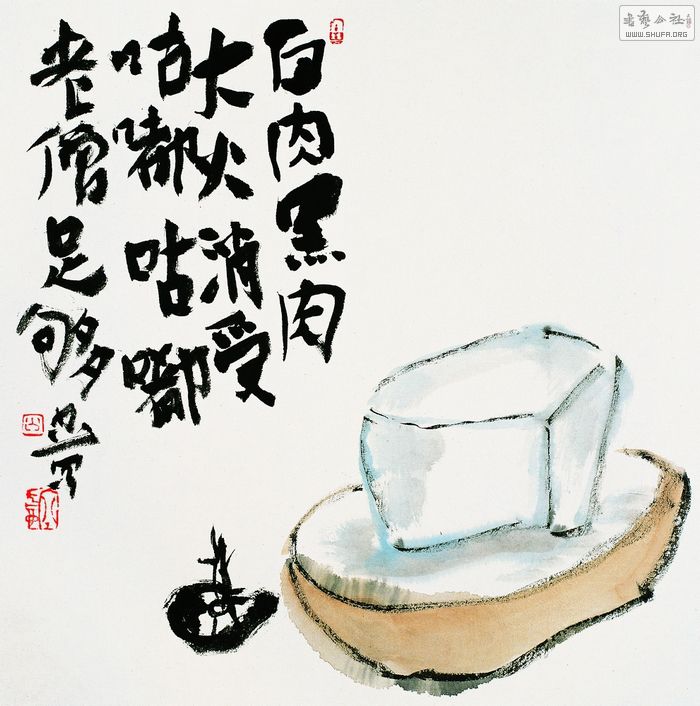 白肉黑肉
大火消受
咕嘟咕嘟
老僧足够
書藝公社
WWW.SHUFA.ORG